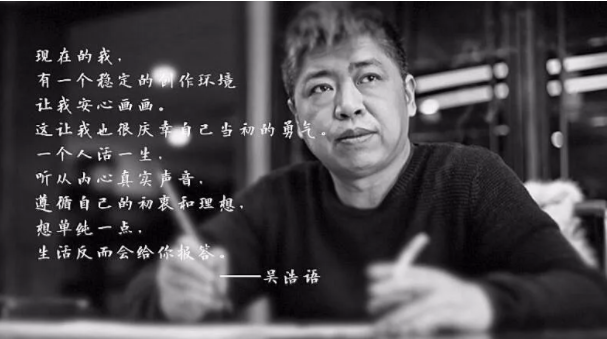 现在的我，
有一个稳定的创作环境
让我安心画画。
这让我也很庆幸自己当初的勇气。
一个人活一生，
听从内心真实声音，
遵循自己的初衷和理想，
想单纯一点，
生活反而会给你报答。
——吴浩语